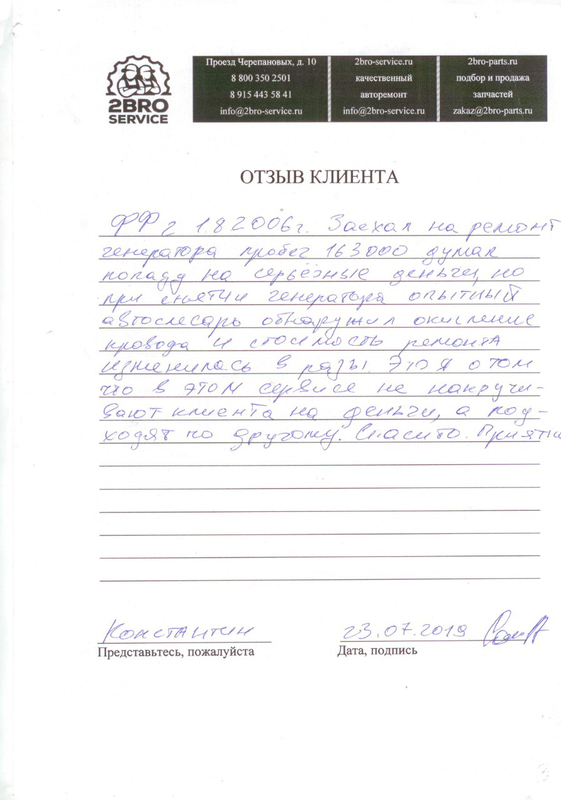 2BRO
SERVICE
Проезд Черепановых, д. 10
8 800 350 2501
8 915 443 58 41
info@2bro-service.ru
2bro-service.ru
качественный
авторемонт
info@2bro-service.ru
2bro-parts.ru
подбор и продажа
запчастей
zakaz@2bro-parts.ru
ОТЗЫВ КЛИЕНТА
ФФ 2 1.8 2006г. Заехал на ремонт
генератора пробег 163000 думал
попаду на серьёзные деньги, но
при снятии генератора опытный
автослесарь обнаружил окисление
провода и стоимость ремонта
изменилась в разы. Это я о том
что в этом сервисе не накручи-
вают клиента на деньги, а под-
ходят по другому. Спасибо. Приятно
Константин
23.07.2019
Представьтесь, пожалуйста
Дата, подпись